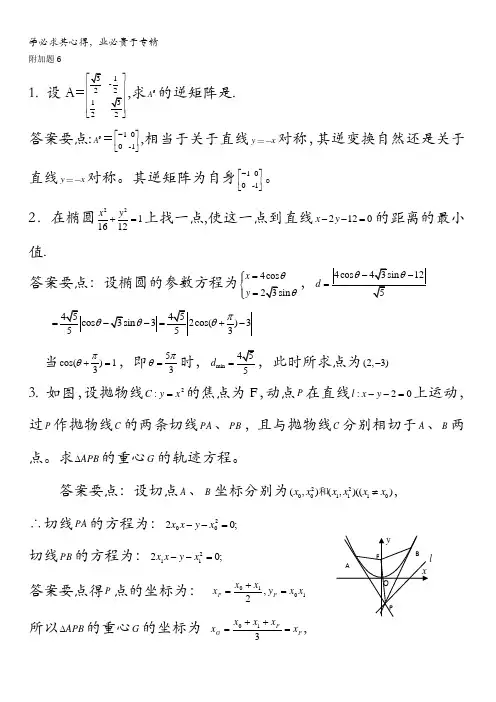 学必求其心得，业必贵于专精
附加题6
1. 设A=[√3/2 -1/2; 1/2 √3/2],求A⁶的逆矩阵是.
答案要点:A⁶=[-1 0; 0 -1],相当于关于直线y=-x对称,其逆变换自然还是关于
直线y=-x对称。其逆矩阵为自身[-1 0; 0 -1]。
2．在椭圆x²/16+y²/12=1上找一点,使这一点到直线x-2y-12=0的距离的最小
值.
答案要点：设椭圆的参数方程为{x=4cosθ y=2√3sinθ，d=|4cosθ-4√3sinθ-12|/√5
=4√5/5|cosθ-√3sinθ-3|=4√5/5|2cos(θ+π/3)-3|
当cos(θ+π/3)=1，即θ=5π/3时，d_min=4√5/5，此时所求点为(2,-3)
3. 如图,设抛物线C:y=x²的焦点为F,动点P在直线l:x-y-2=0上运动,
过P作抛物线C的两条切线PA、PB，且与抛物线C分别相切于A、B两
点。求ΔAPB的重心G的轨迹方程。
答案要点：设切点A、B坐标分别为(x₀,x₀²)和(x₁,x₁²)((x₁≠x₀),
∴切线PA的方程为：2x₀x-y-x₀²=0;
切线PB的方程为：2x₁x-y-x₁²=0;
答案要点得P点的坐标为： x_P=(x₀+x₁)/2,y_P=x₀x₁
所以ΔAPB的重心G的坐标为 x_G=(x₀+x₁+x_P)/3=x_P,
y
F
B
A
l
O
x
P